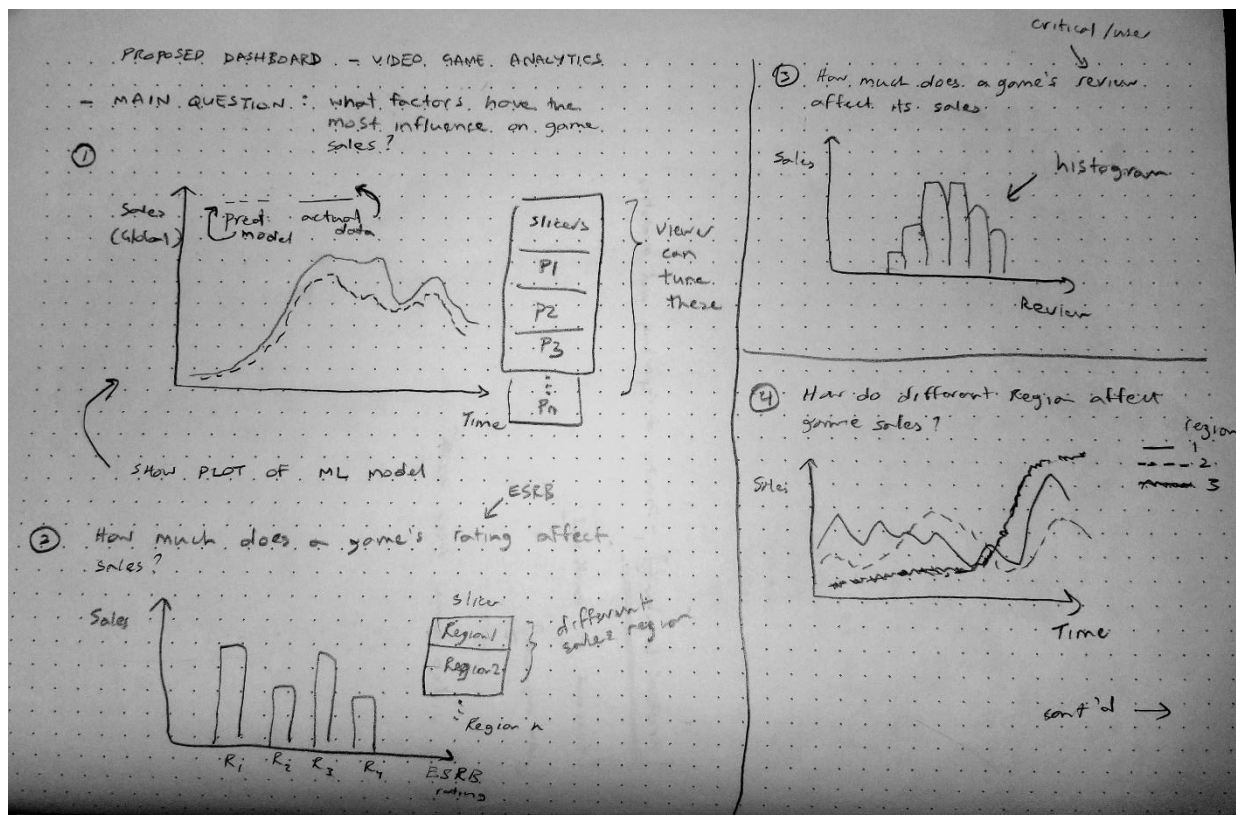 PROPOSED DASHBOARD - VIDEO GAME ANALYTICS
- MAIN QUESTION: What factors have the
most influence on game
sales?
①
Sales
(Global)
pred.
model
actual
data
Time
slicers
P1
P2
P3
Pn
viewer
can
tune
these
SHOW PLOT OF ML MODEL
② How much does a game's rating affect
sales?
ESRB
Sales
R1 R2 R3 R4
ESRB
rating
slicer
Region 1
Region 2
Region n
different
sales region
critical/user
③ How much does a game's review
affect its sales
Sales
histogram
Review
④ How do different Region affect
game sales?
region
1
2
3
Sales
Time
cont'd →